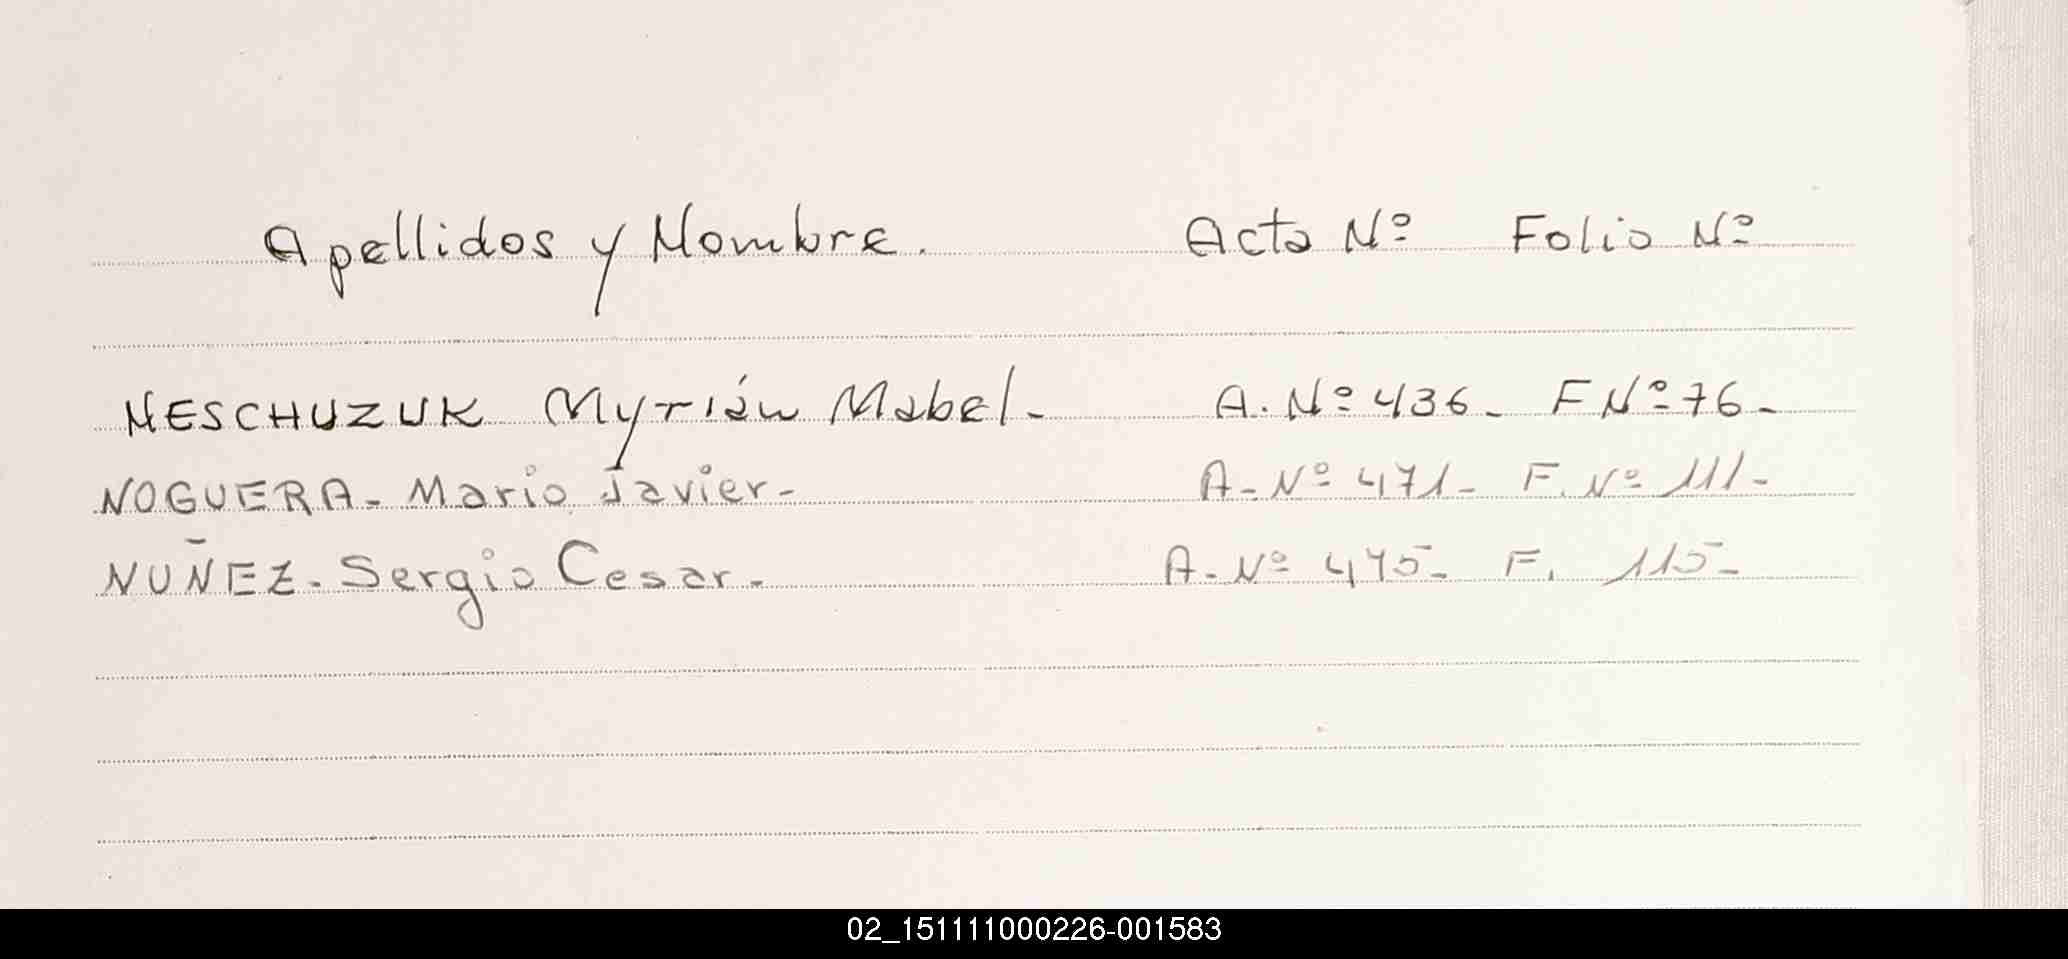 Apellidos y Nombre. Acta Nº Folio Nº
NESCHUZUK Myrián Mabel. A. Nº 436. F Nº 76.
NOGUERA. Mario Javier. A. Nº 471. F. Nº 111.
NUÑEZ. Sergio Cesar. A. Nº 475. F. 115.
02_151111000226-001583